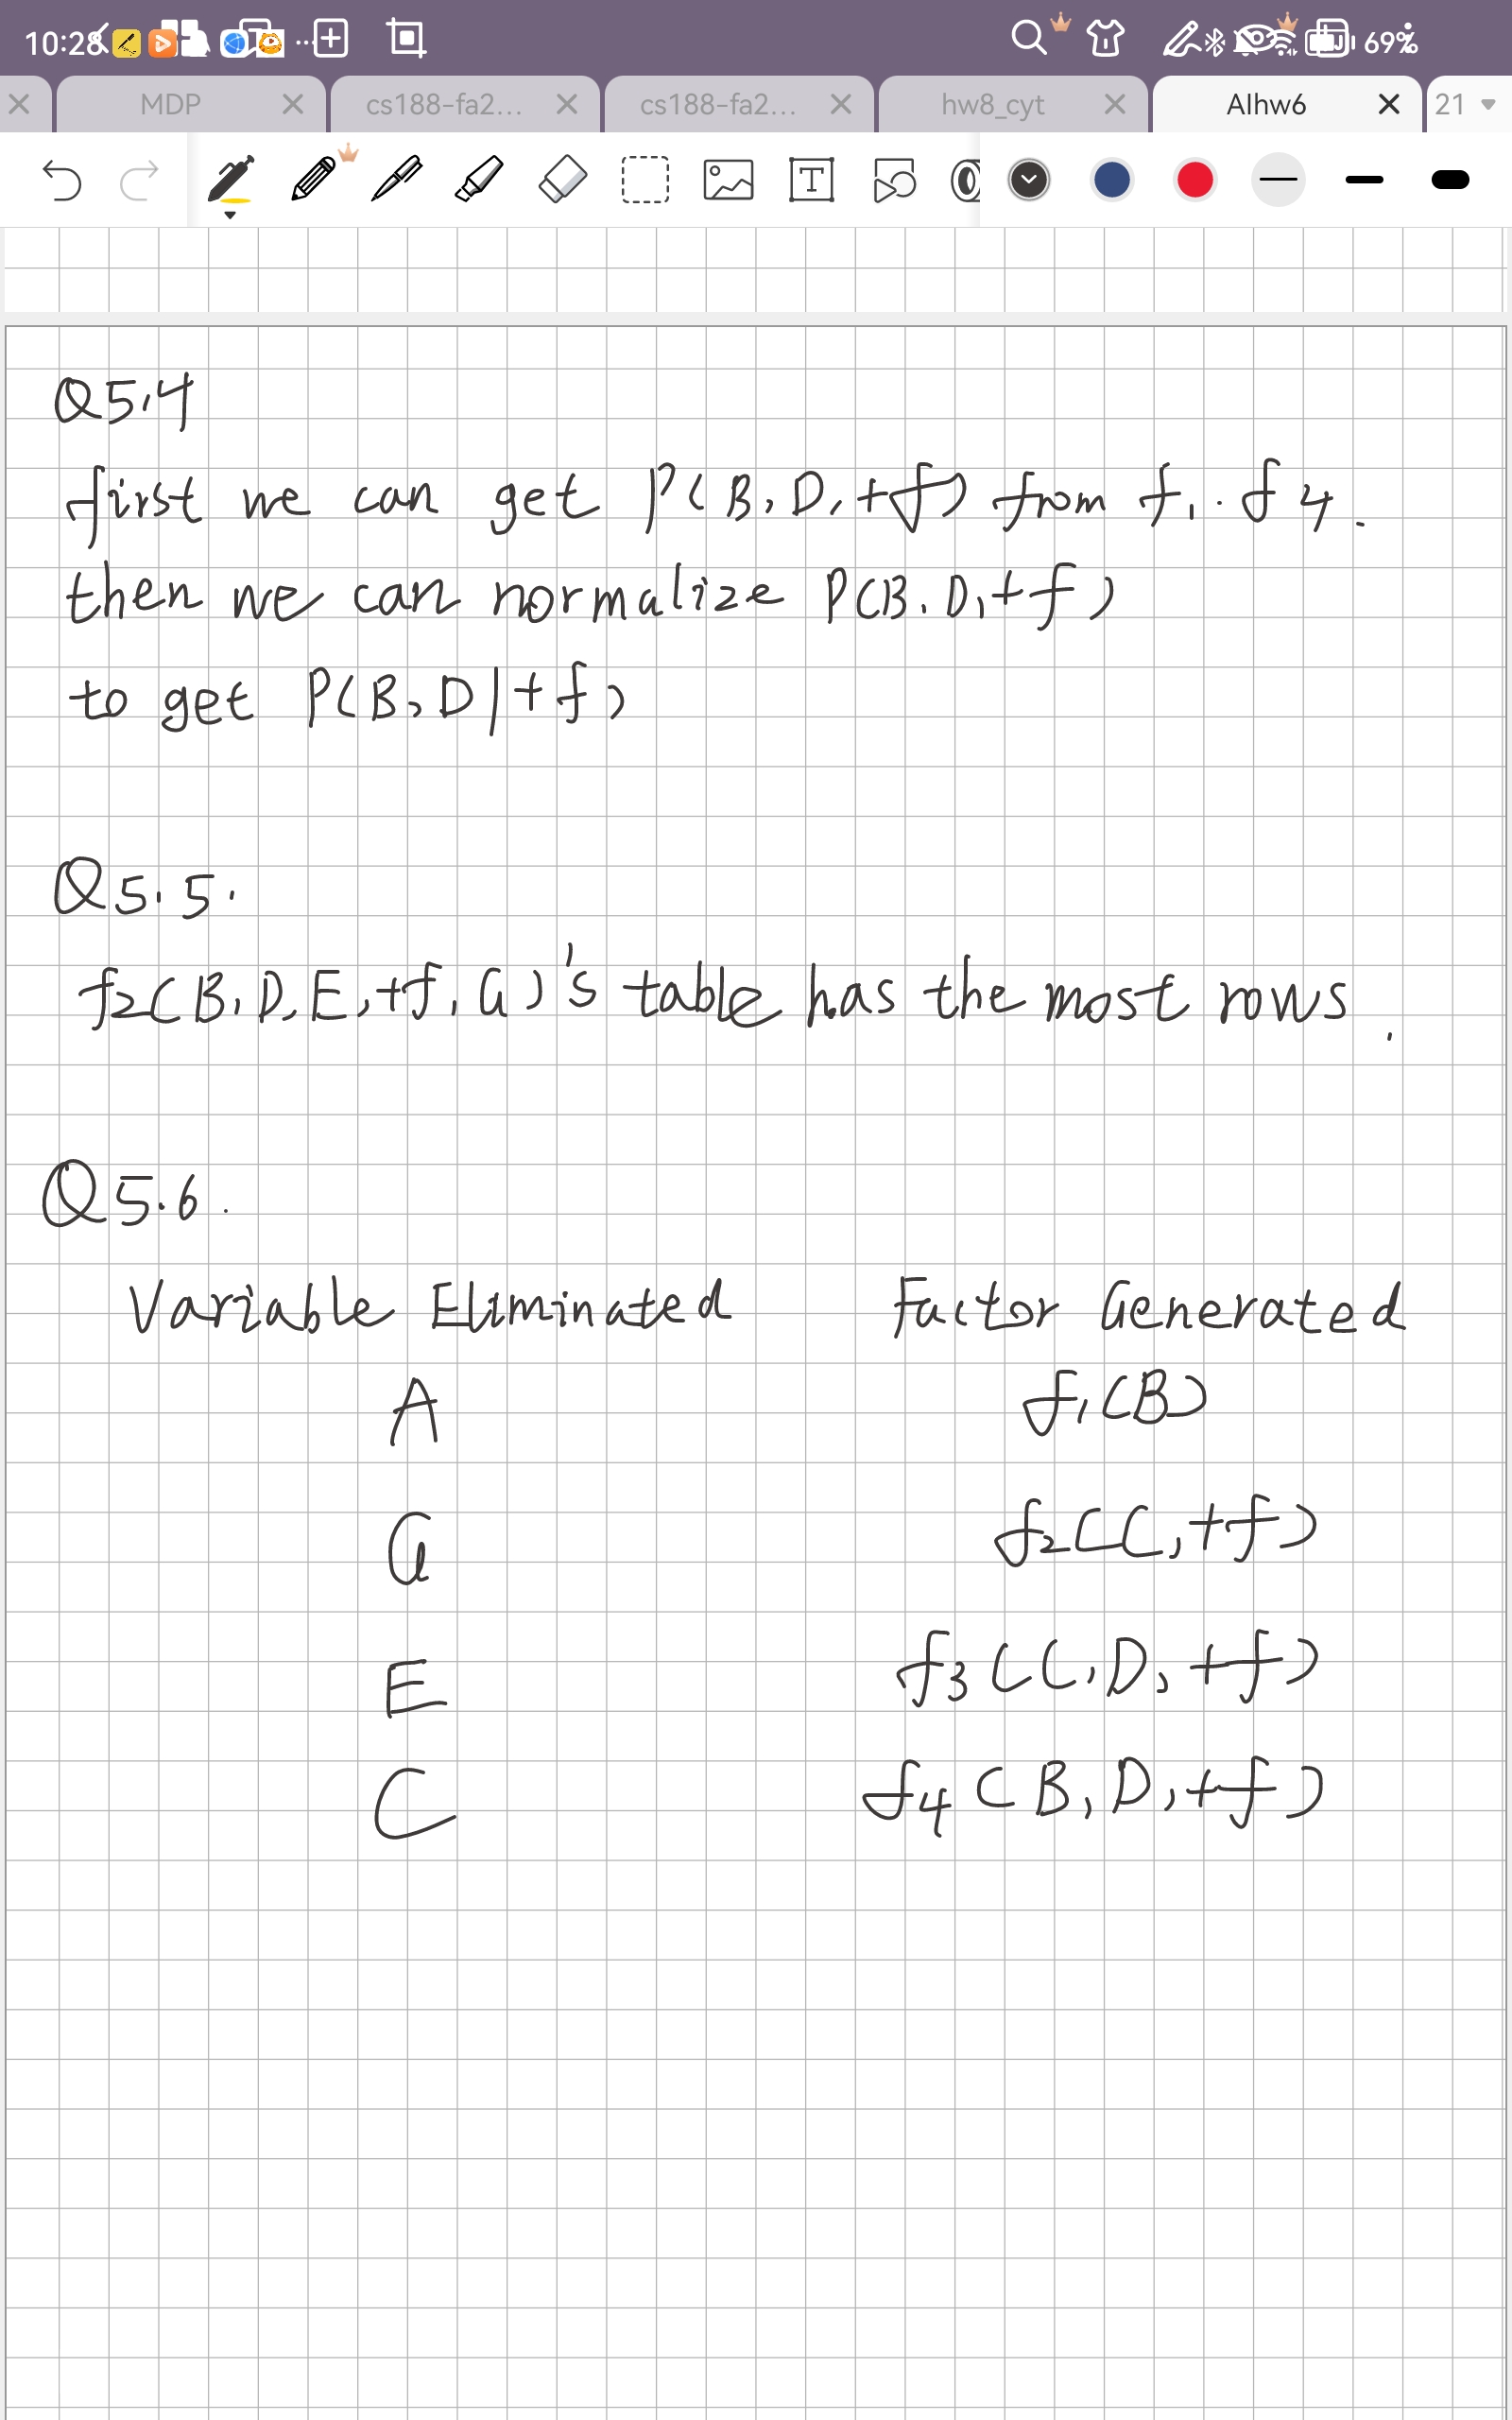 10:28
69%
MDP
cs188-fa2...
cs188-fa2...
hw8_cyt
AIhw6
21
Q5.4
first we can get P(B, D, +f) from f1..f4.
then we can normalize P(B, D, +f)
to get P(B, D|+f)
Q5.5.
f2(B, D, E, +f, G)'s table has the most rows.
Q5.6.
Variable Eliminated Factor Generated
A f1(B)
G f2(C, +f)
E f3(C, D, +f)
C f4(B, D, +f)